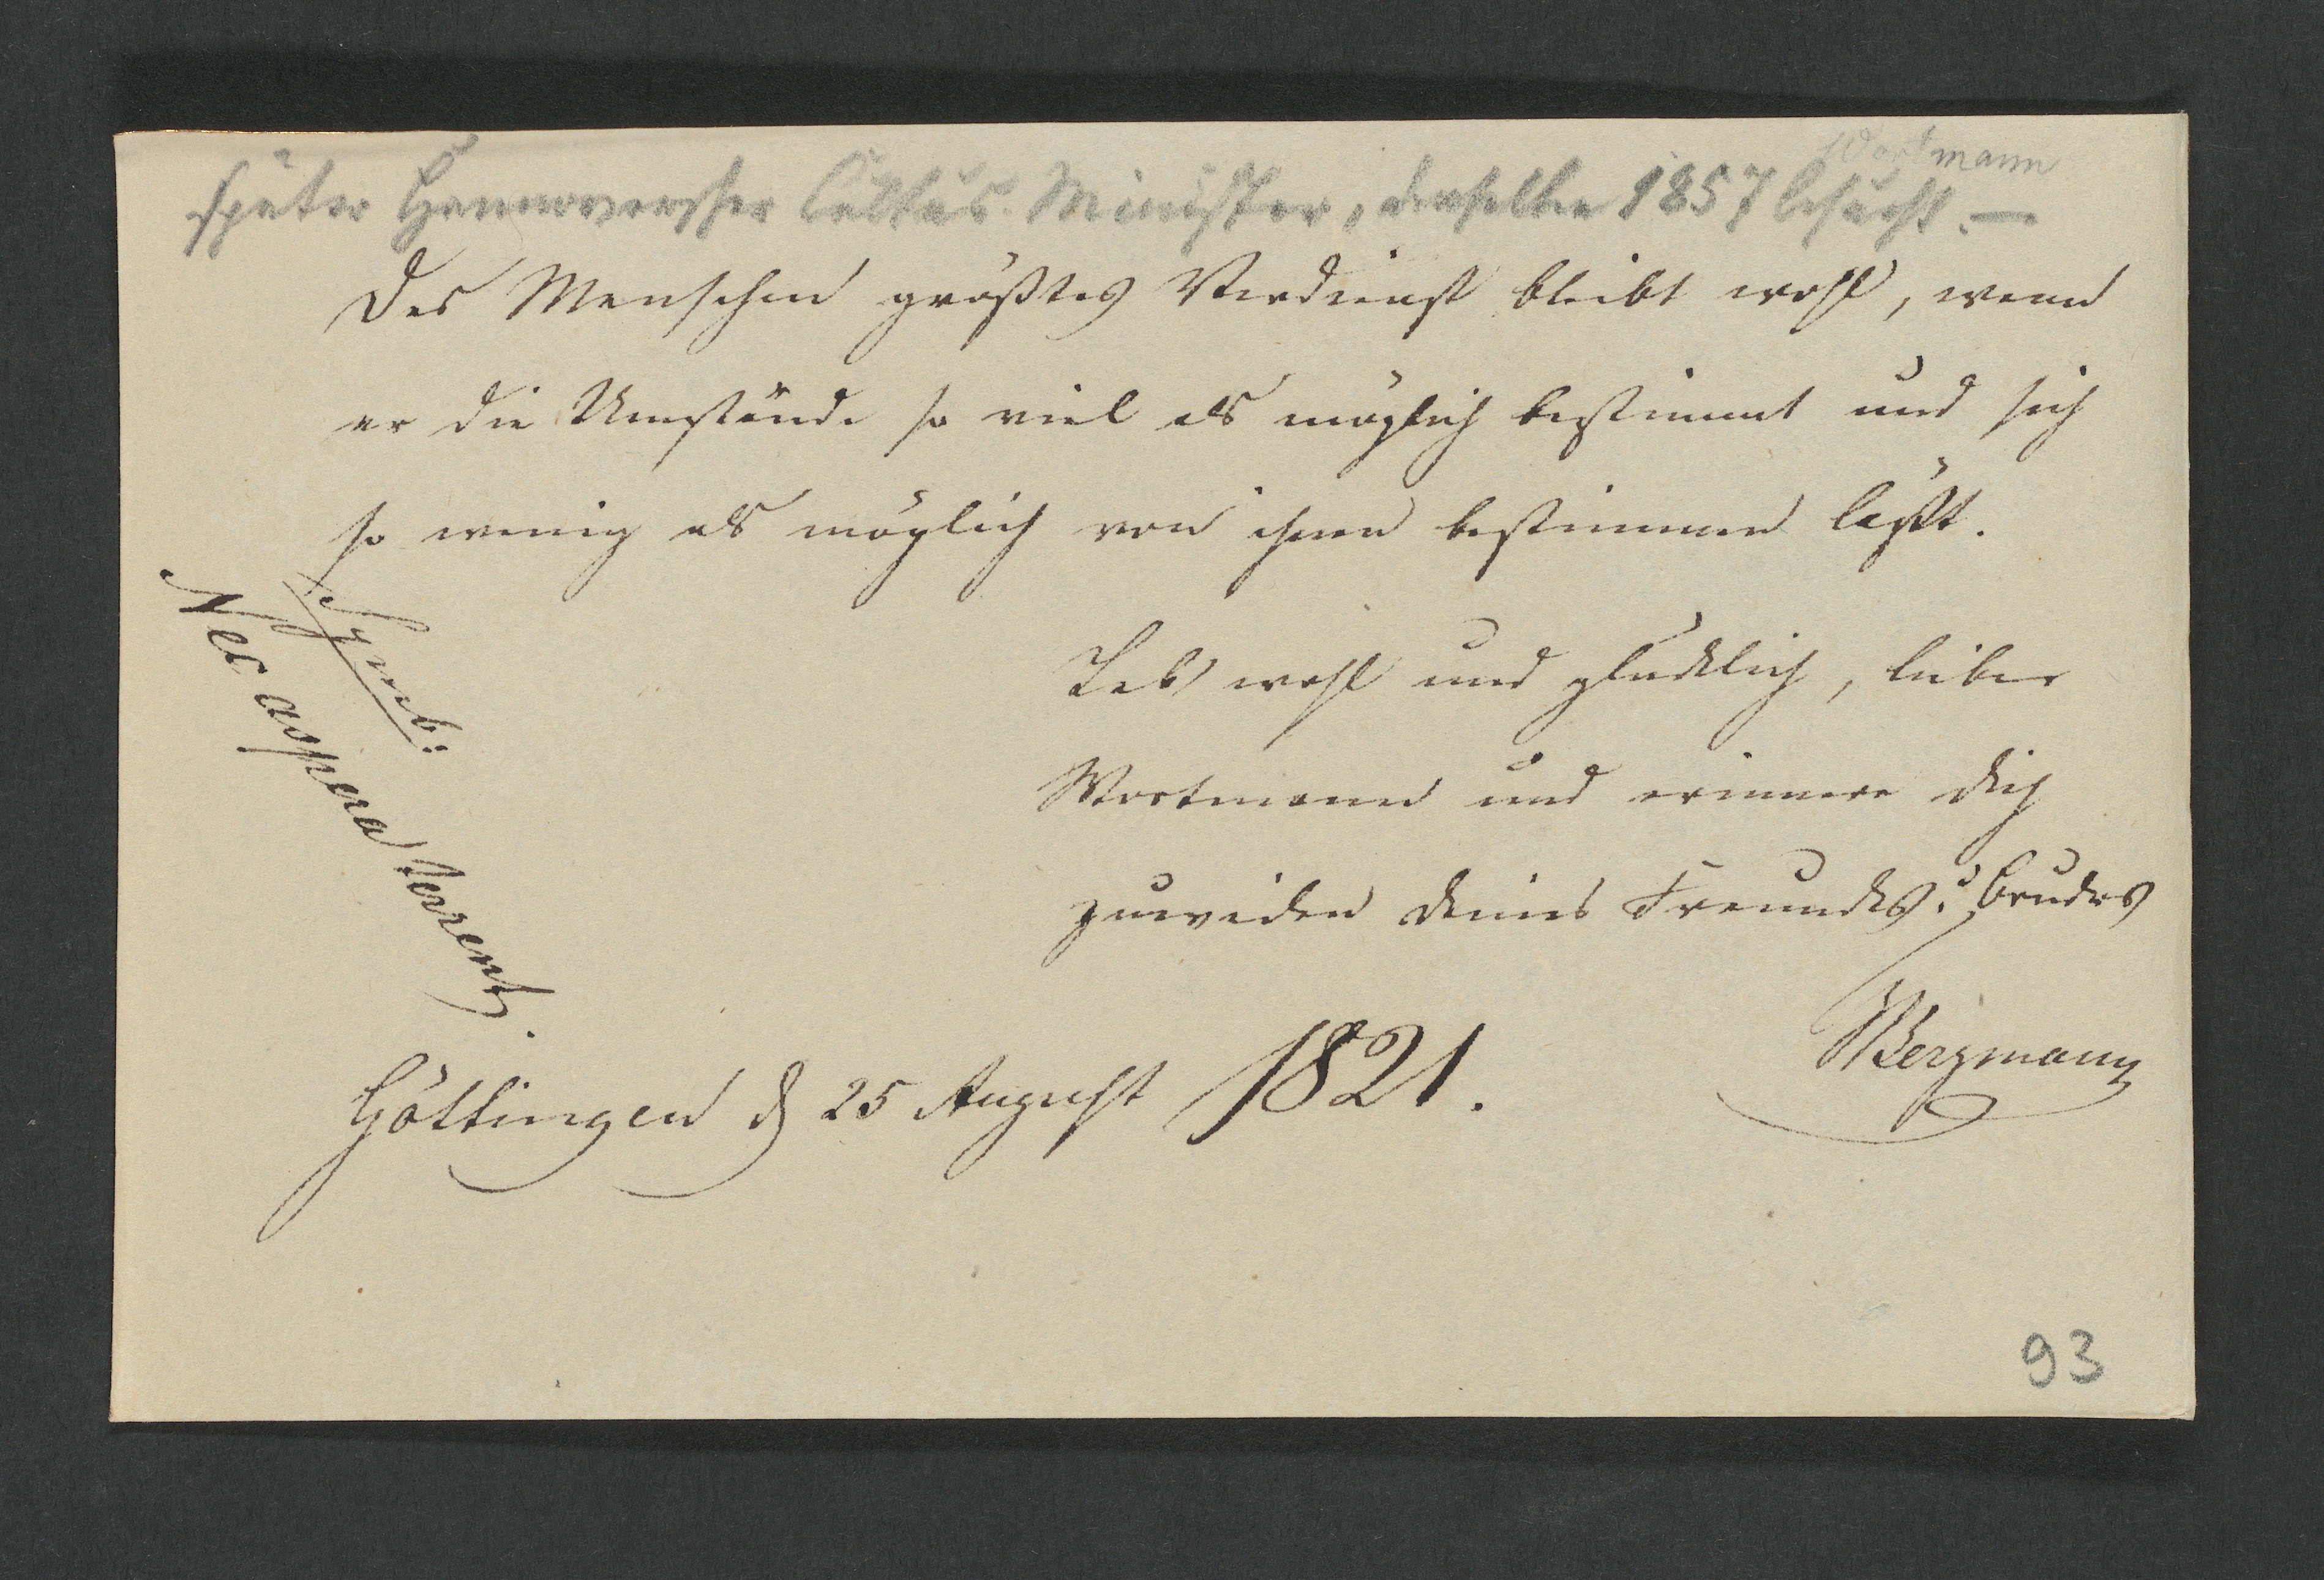 Wortmann
später Hannoverscher Cultus-Minister, denselben 1857 besucht. —
Des Menschen größtes Verdienst bleibt wohl, wenn
er die Umstände so viel als möglich bestimmt und sich
so wenig als möglich von ihnen bestimmen läßt.
Symb:
Nec aspera terrent.
Leb wohl und glücklich, lieber
Wortmann und erinnere dich
zuweilen deines Freundes u. Bruders
Bergmann
Göttingen d 25 August 1821.
93